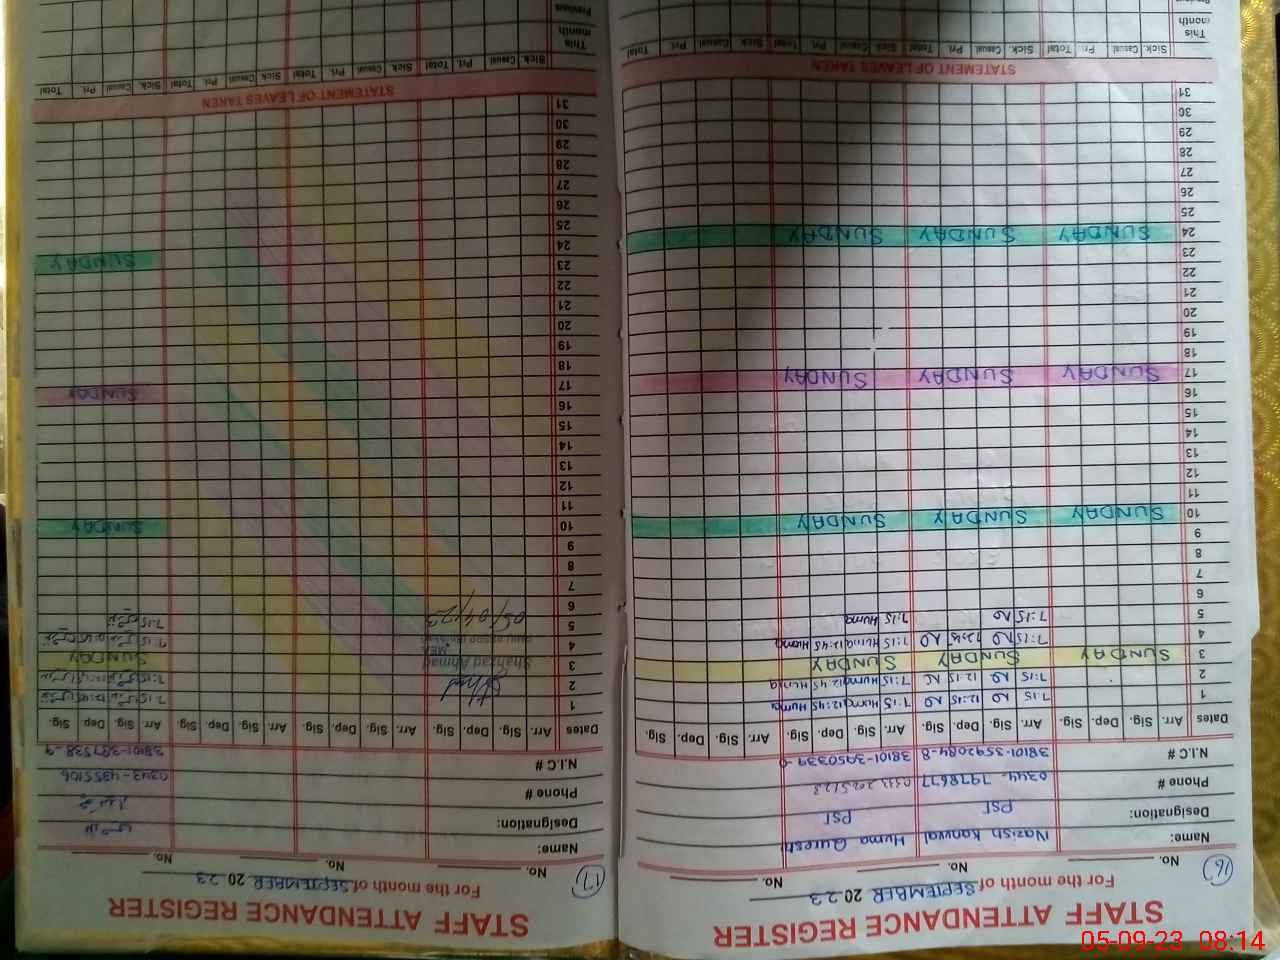 16
STAFF ATTENDANCE REGISTER
For the month of SEPTEMBER 2023
No. No. No.
Name: Nazish Kanwal Huma Qureshi
Designation: PST PST
Phone # 0344-7978677
N.I.C # 38101-3592084-8
Dates Arr. Sig. Dep. Sig. Arr. Sig. Dep. Sig. Arr. Sig. Dep. Sig. Arr. Sig. Dep. Sig.
1 7:15 12:45 7:15 Huma 12:45 Huma
2 7:15 12:15 7:15 Huma 12:45 Huma
3 SUNDAY SUNDAY SUNDAY
4 7:15 12:45 7:15 Huma 12:45 Huma
5 7:15 7:15 Huma
6
7
8
9
10 SUNDAY SUNDAY SUNDAY
11
12
13
14
15
16
17 SUNDAY SUNDAY SUNDAY
18
19
20
21
22
23
24 SUNDAY SUNDAY SUNDAY
25
26
27
28
29
30
31
STATEMENT OF LEAVES TAKEN
Sick. Casual Pri. Total Sick. Casual Pri. Total Sick. Casual Pri. Total Sick. Casual Pri. Total
This month
Previous
17
STAFF ATTENDANCE REGISTER
For the month of SEPTEMBER 2023
No. No. No.
Name:
Designation:
Phone # 0343-4855106
N.I.C #
Dates Arr. Sig. Dep. Sig. Arr. Sig. Dep. Sig. Arr. Sig. Dep. Sig. Arr. Sig. Dep. Sig.
1 7:15 12:45
2 7:15
3 Shahzad Ahmad SUNDAY
MEA
4 7:15
5 05/09/23 7:15
6
7
8
9
10 SUNDAY
11
12
13
14
15
16
17 SUNDAY
18
19
20
21
22
23 SUNDAY
24
25
26
27
28
29
30
31
STATEMENT OF LEAVES TAKEN
Sick. Casual Pri. Total Sick. Casual Pri. Total Sick. Casual Pri. Total Sick. Casual Pri. Total
This month
Previous
05-09-23 08:14